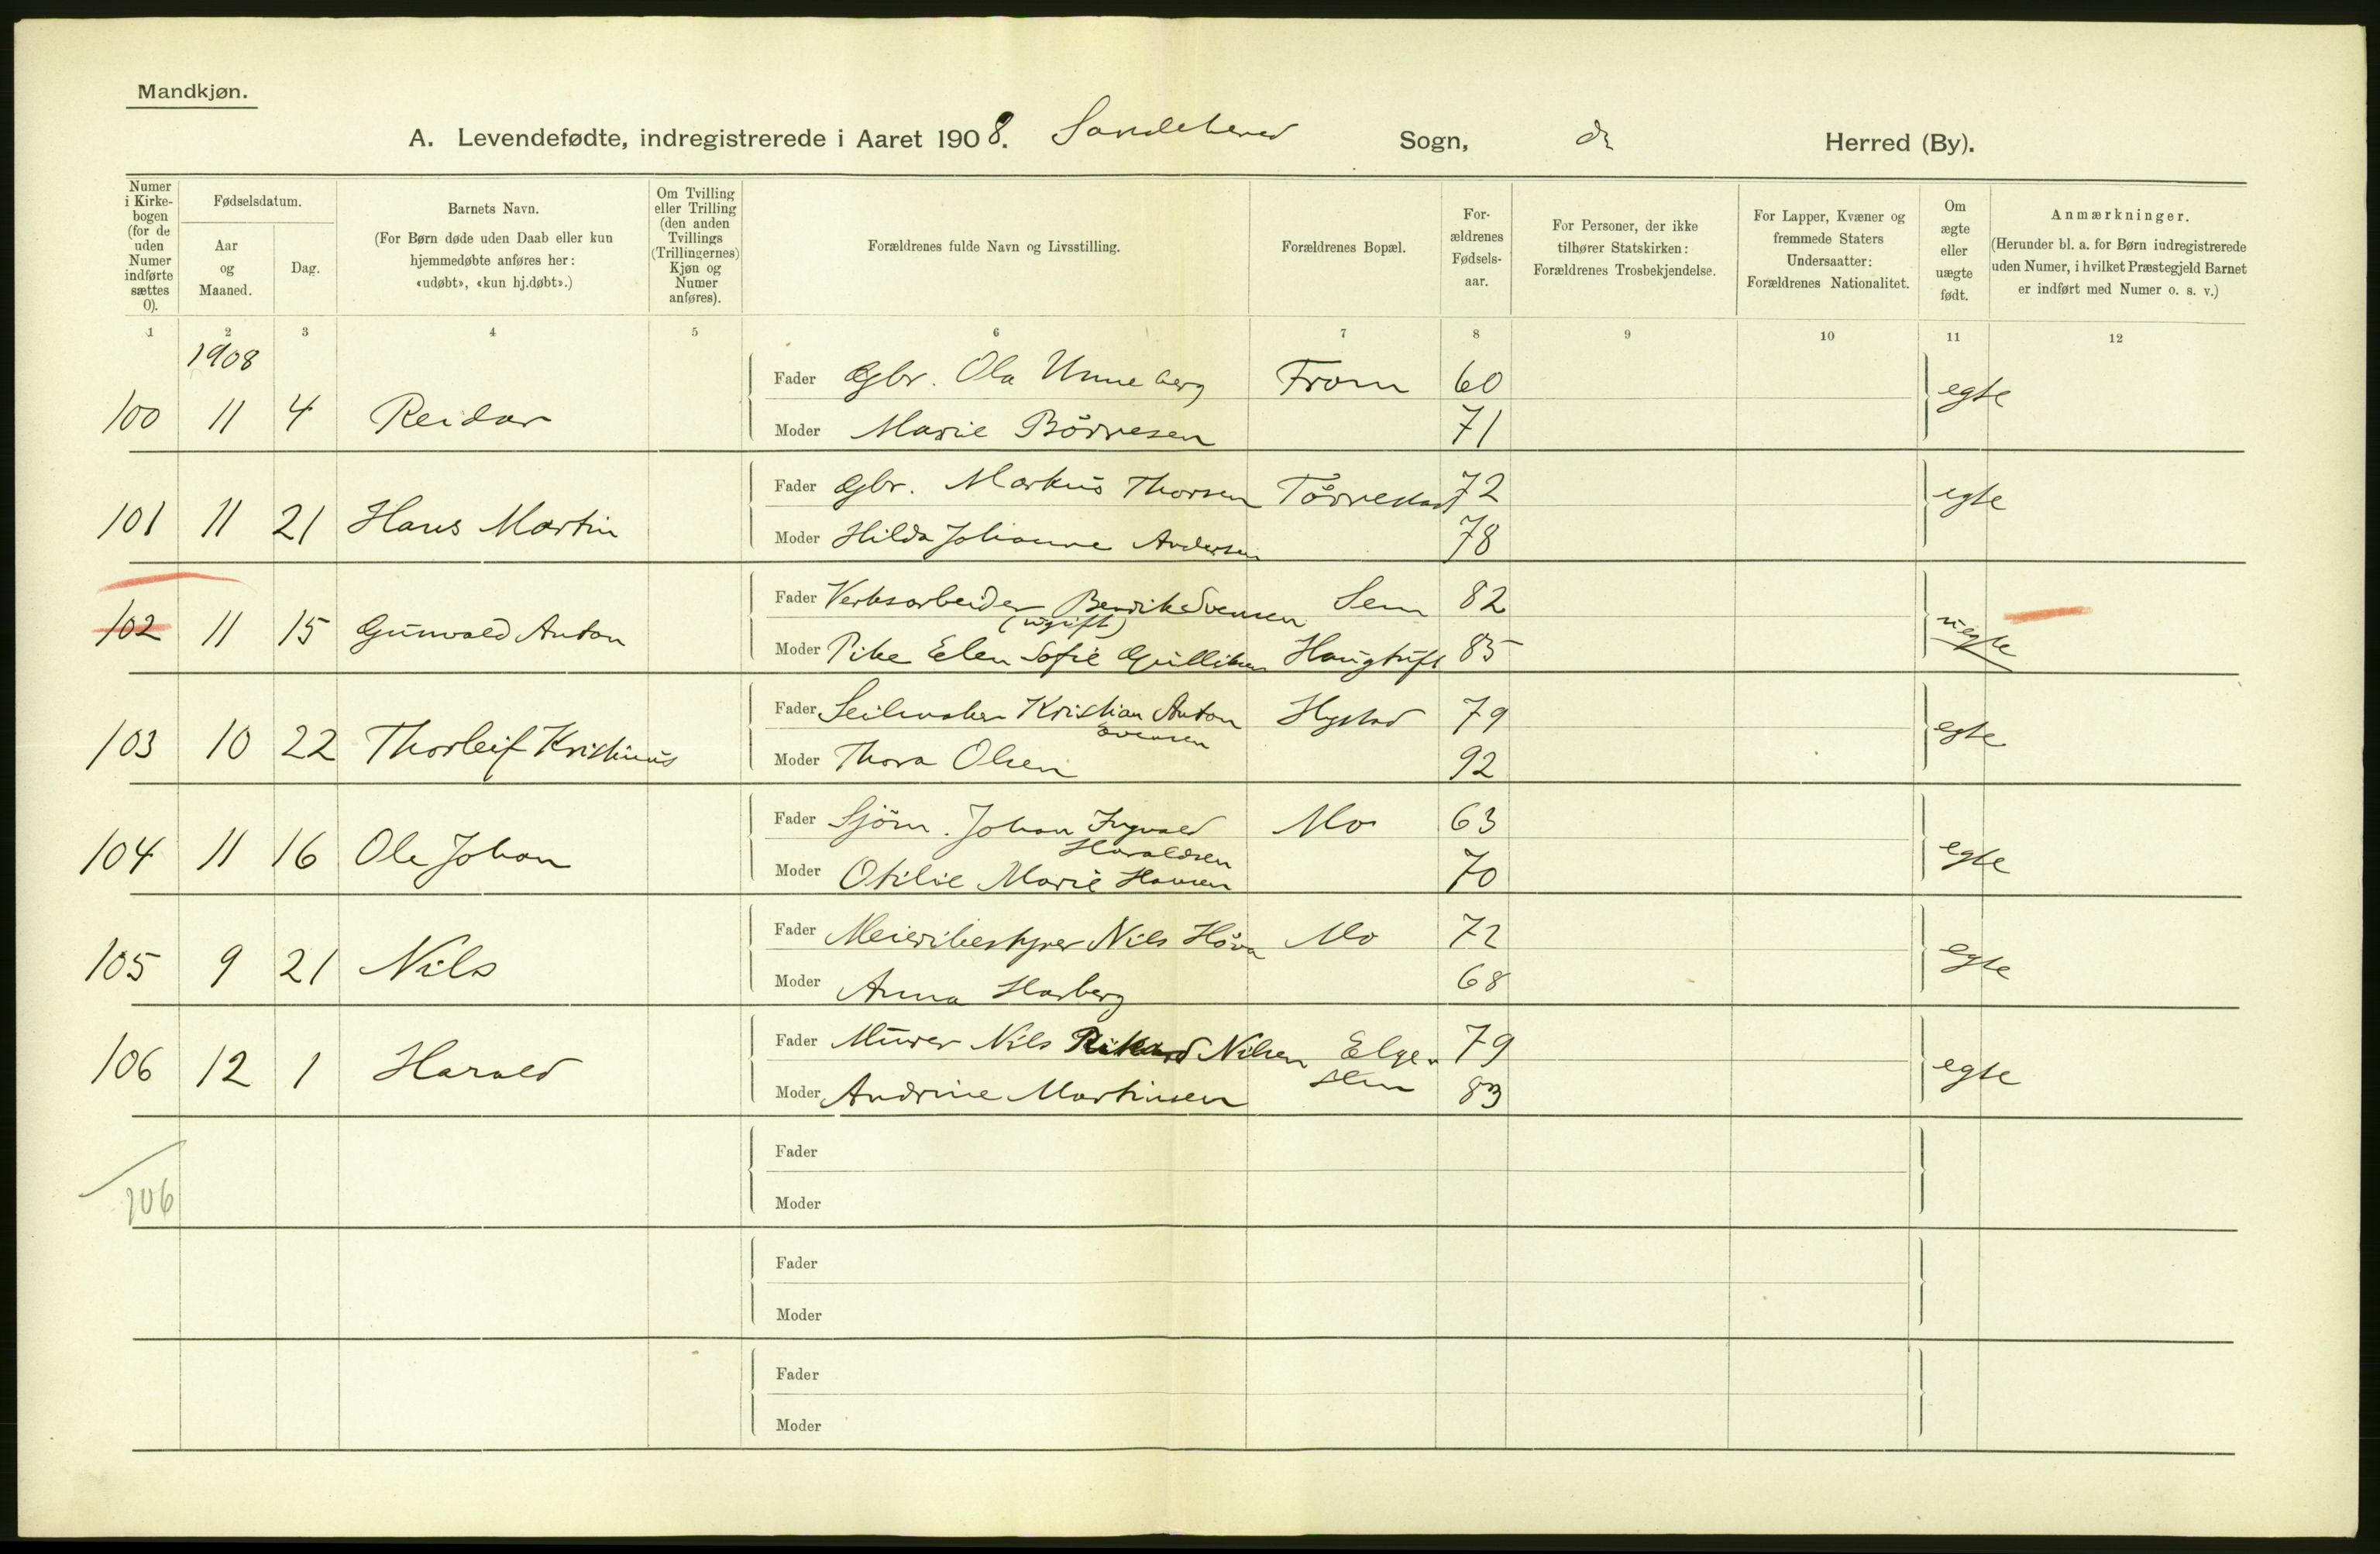 Mandkjøn.
A. Levendefødte, indregistrerede i Aaret 1908. Sandeherred Sogn, do Herred (By).
Numer i Kirkebogen (for de uden Numer indførte sættes 0).
Fødselsdatum.
Aar og Maaned.
Dag.
Barnets Navn.
(For Børn døde uden Daab eller kun hjemmedøbte anføres her: «udøbt», «kun hj.døbt».)
Om Tvilling eller Trilling (den anden Tvillings (Trillingernes) Kjøn og Numer anføres).
Forældrenes fulde Navn og Livsstilling.
Forældrenes Bopæl.
Forældrenes Fødselsaar.
For Personer, der ikke tilhører Statskirken: Forældrenes Trosbekjendelse.
For Lapper, Kvæner og fremmede Staters Undersaatter: Forældrenes Nationalitet.
Om ægte eller uægte født.
Anmærkninger.
(Herunder bl. a. for Børn indregistrerede uden Numer, i hvilket Præstegjeld Barnet er indført med Numer o. s. v.)
1 2 3 4 5 6 7 8 9 10 11 12
1908
Fader Gbr. Ola Unneberg From 60 egte
100 11 4 Reidar
Moder Marie Börresen 71
Fader Gbr. Markus Thorsen Törrestad 72 egte
101 11 21 Hans Martin
Moder Hilda Johanne Andersen 78
Fader Verksarbeider Bendik Svensen Sem 82
(ugift)
102 11 15 Gunvald Anton uegte
Moder Pike Elen Sofie Gulliksen Haugtuft 85
Fader Seilmaker Kristian Anton Svensen Hystad 79 egte
103 10 22 Thorleif Kristinus
Moder Thora Olsen 92
Fader Sjöm. Johan Ingvald Haraldsen Mo 63
104 11 16 Ole Johan egte
Moder Otilie Marie Hansen 70
Fader Meieribestyrer Nils Mo 72
105 9 21 Nils egte
Moder Anna 68
Fader Murer Nils Rikard Nilsen 79
106 12 1 Harald egte
Moder Andrine Martinsen 83
Fader
106
Moder
Fader
Moder
Fader
Moder